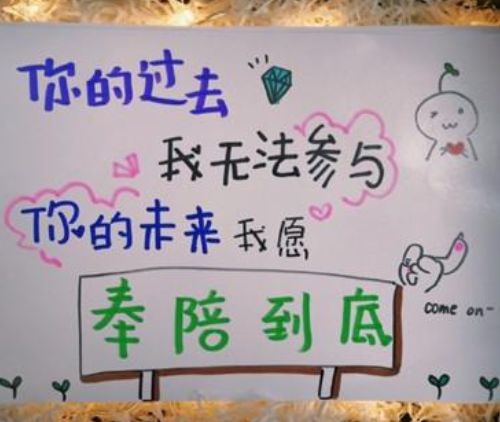 你的过去
我无法参与
你的未来 我愿
奉陪到底
come on~